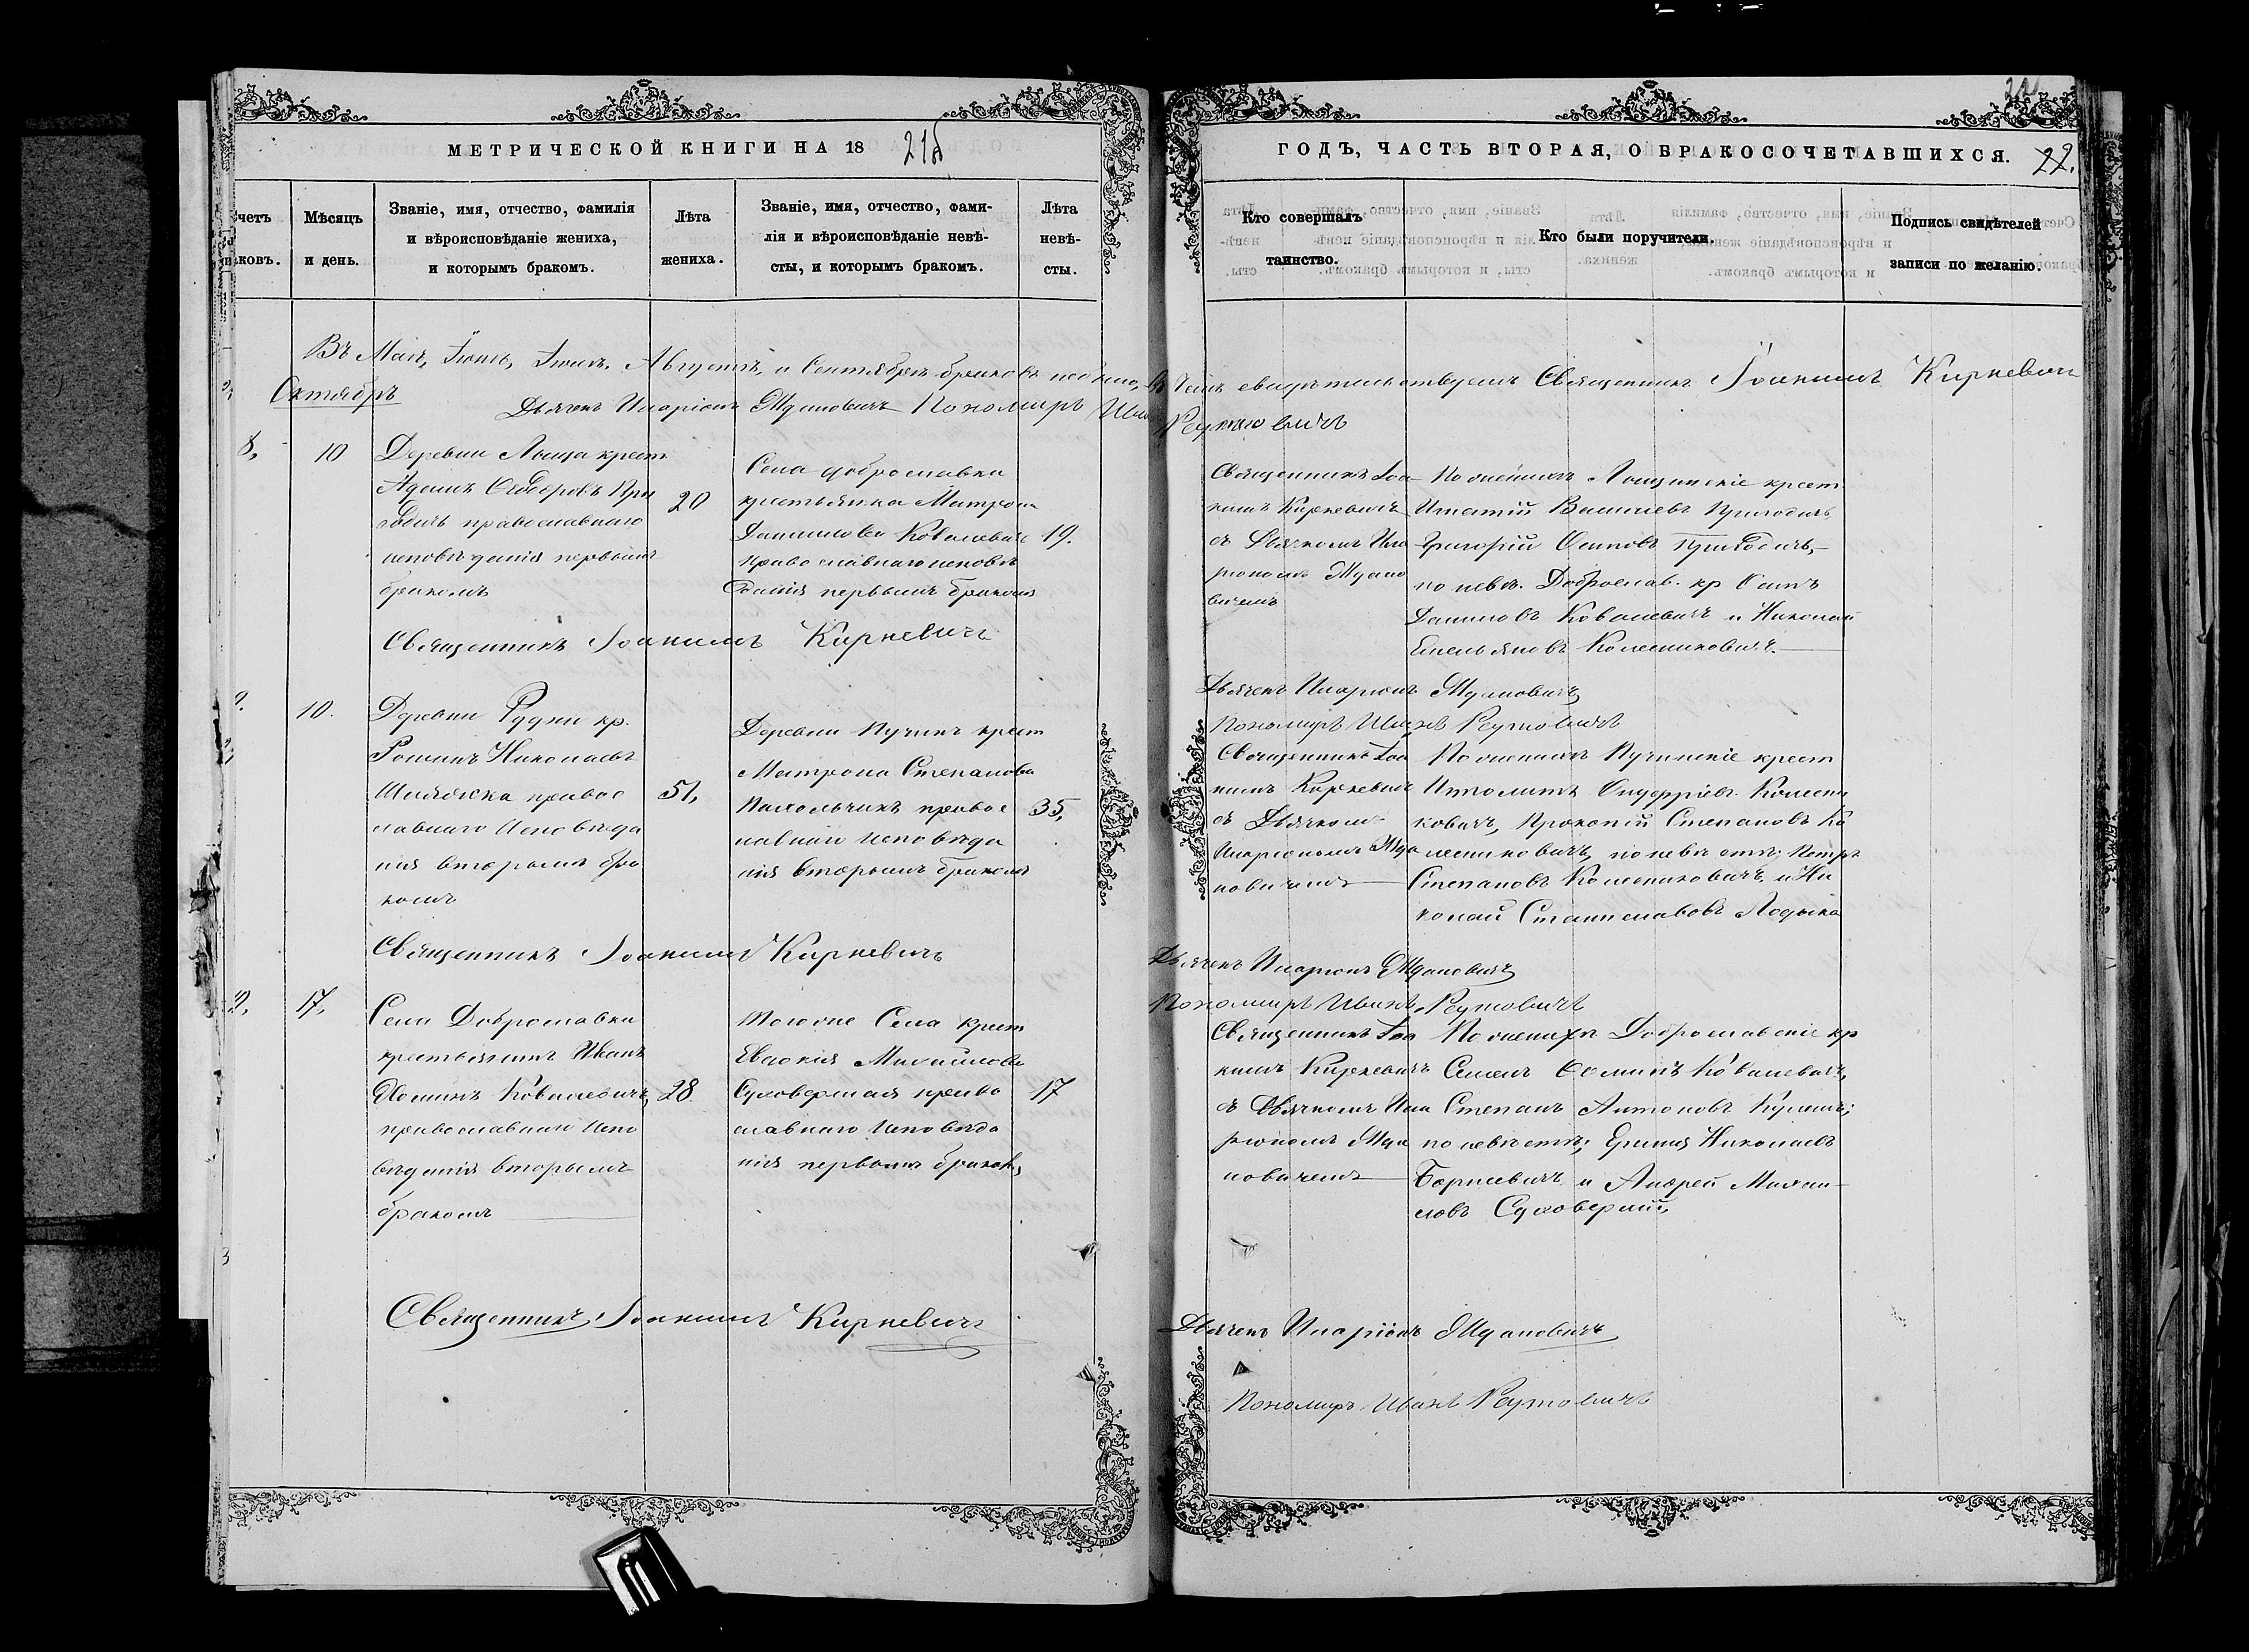 МЕТРИЧЕСКОЙ КНИГИ НА 18
ГОДЪ, ЧАСТЬ ВТОРАЯ, О БРАКОСОЧЕТАВШИХСЯ.
22.
Мѣсяцъ и день.
Званіе, имя, отчество, фамилія
и вѣроисповѣданіе жениха,
и которымъ бракомъ.
Лѣта
жениха.
Званіе, имя, отчество, фами-
лія и вѣроисповѣданіе невѣ-
сты, и которымъ бракомъ.
Лѣта
невѣ-
сты.
Кто совершалъ
таинство.
Кто были поручители.
Подпись свидѣтелей
записи по желанію.
Въ Маѣ, Іюнѣ, Іюлѣ, Августѣ, и Сентябрѣ браковъ небыло, въ чемъ свидѣтельствуемъ Священникъ Іоакимъ Киркевичъ
Октябрь
Дьячекъ Иларіонъ Ждановичъ Пономарь Иванъ
Реутовичъ
8,
10
Деревни Лыща крест
Адамъ
православнаго
исповѣданія первымъ
бракомъ
20
Села Доброславки
крестьянка Матрона
Данилова Ковалевичъ
православнаго исповѣ
данія первымъ бракомъ
19.
Священникъ Іоа
кимъ Киркевичъ
съ Дьячкомъ Ила
ріономъ Ждано
вичемъ
Игнатій Васильевъ Приходичъ
Григорій Осиповъ Приходичъ,
по невѣ. Доброслав. кр
Даниловъ Ковалевичъ и Николай
Емельяновъ Колесниковичъ.
Священникъ Іоакимъ Киркевичъ
Дьячекъ Иларіонъ Ждановичъ
Пономарь Иванъ Реутовичъ
10.
Деревни Рудни кр.
Романъ Николаевъ
правос
лавнаго Исповѣда
нія вторымъ бра
комъ
51,
Деревни Пучинъ крест
Матрона Степанова
Пахольчикъ правос
лавнаго исповѣда
нія вторымъ бракомъ
35,
Священникъ Іоа
кимъ Киркевичъ
съ Дьячкомъ
Иларіономъ Жда
новичемъ
По женихѣ Пучинскіе крест
Ипполитъ Колесни
ковичъ, Прокопій Степановъ Ко
лесниковичъ, по невѣстѣ; Петръ
Степановъ Колесниковичъ, и Ни
колай Станиславовъ Лодыка
Священникъ Іоакимъ Киркевичъ
Дьячекъ Иларіонъ Ждановичъ
Пономарь Иванъ Реутовичъ
17,
Села Доброславки
крестьянинъ Иванъ
Ѳоминъ Ковалевичъ,
православнаго Испо
вѣданія вторымъ
бракомъ
28
Того же Села крест
Евдокія Михайлова
Суховерхая право
славнаго Исповѣда
нія первымъ бракомъ
17
Священникъ Іоа
кимъ Киркевичъ
съ Дьячкомъ Ила
ріономъ Жда
новичемъ
По женихѣ Доброславскіе кр
Семенъ Ѳоминъ Ковалевичъ,
Степанъ Антоновъ Кулешъ;
по невѣстѣ; Николаевъ
Борисевичъ и Андрей Михаи
ловъ Суховерхій,
Священникъ Іоакимъ Киркевичъ
Дьячекъ Иларіонъ Ждановичъ
Пономарь Иванъ Реутовичъ